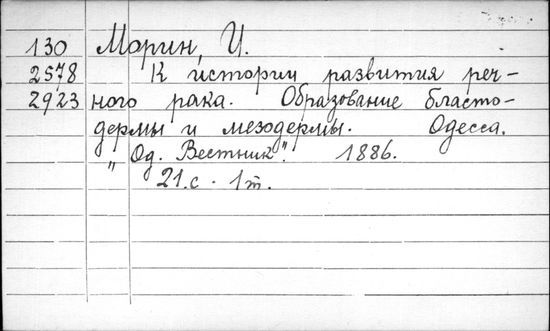 130 Морин, И.
2578 К истории развития реч-
2923 ного рака. Образование бласто-
дермы и мезодермы. Одесса.
„Од. Вестник”. 1886.
21.с. 1т.